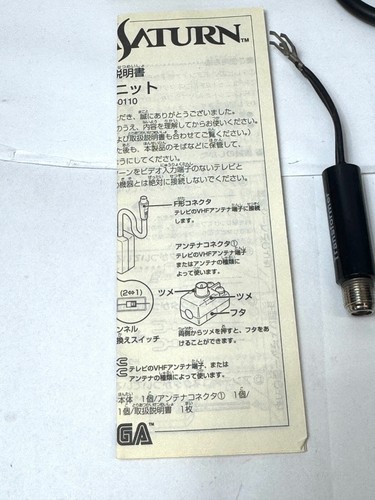 SATURN™
説明書
ニット
0110
だき、誠にありがとうございました。
のうえ、内容を理解してからお使いください。
よび取扱説明書も合わせてご覧ください。)
た後も、本製品のそばなどに保管して、
うにしてください。
ーンをビデオ入力端子のないテレビと
の機器とは絶対に接続しないでください。
F形コネクタ
テレビのVHFアンテナ端子に接続
します。
アンテナコネクタ①
テレビのVHFアンテナ端子
またはアンテナの種類に
よって使います。
(2⇔1)
ツメ
ツメ
フタ
ンネル
換えスイッチ
両側からツメを押すと、フタをあ
けることができます。
テレビのVHFアンテナ端子、または
アンテナの種類によって使います。
本体 1個/アンテナコネクタ① 1個/
1個/取扱説明書 1枚
GA™
Transformer